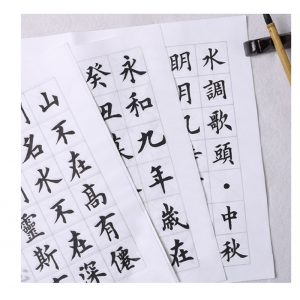 水調歌頭·中秋
明月几
永和九年歲在
癸丑
山不在高有僊
名水不在深
靈斯